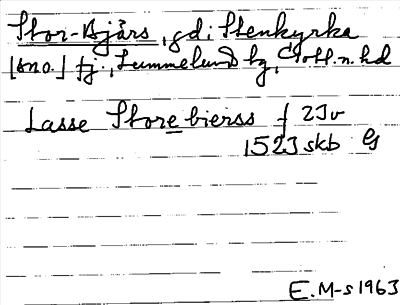 Stor-Bjärs, gd i Stenkyrka
[sno.] tj., Lummelunds tg, Gotl. n. hd
Lasse Storebierss f 23v
1523 skb
E.M-s 1963